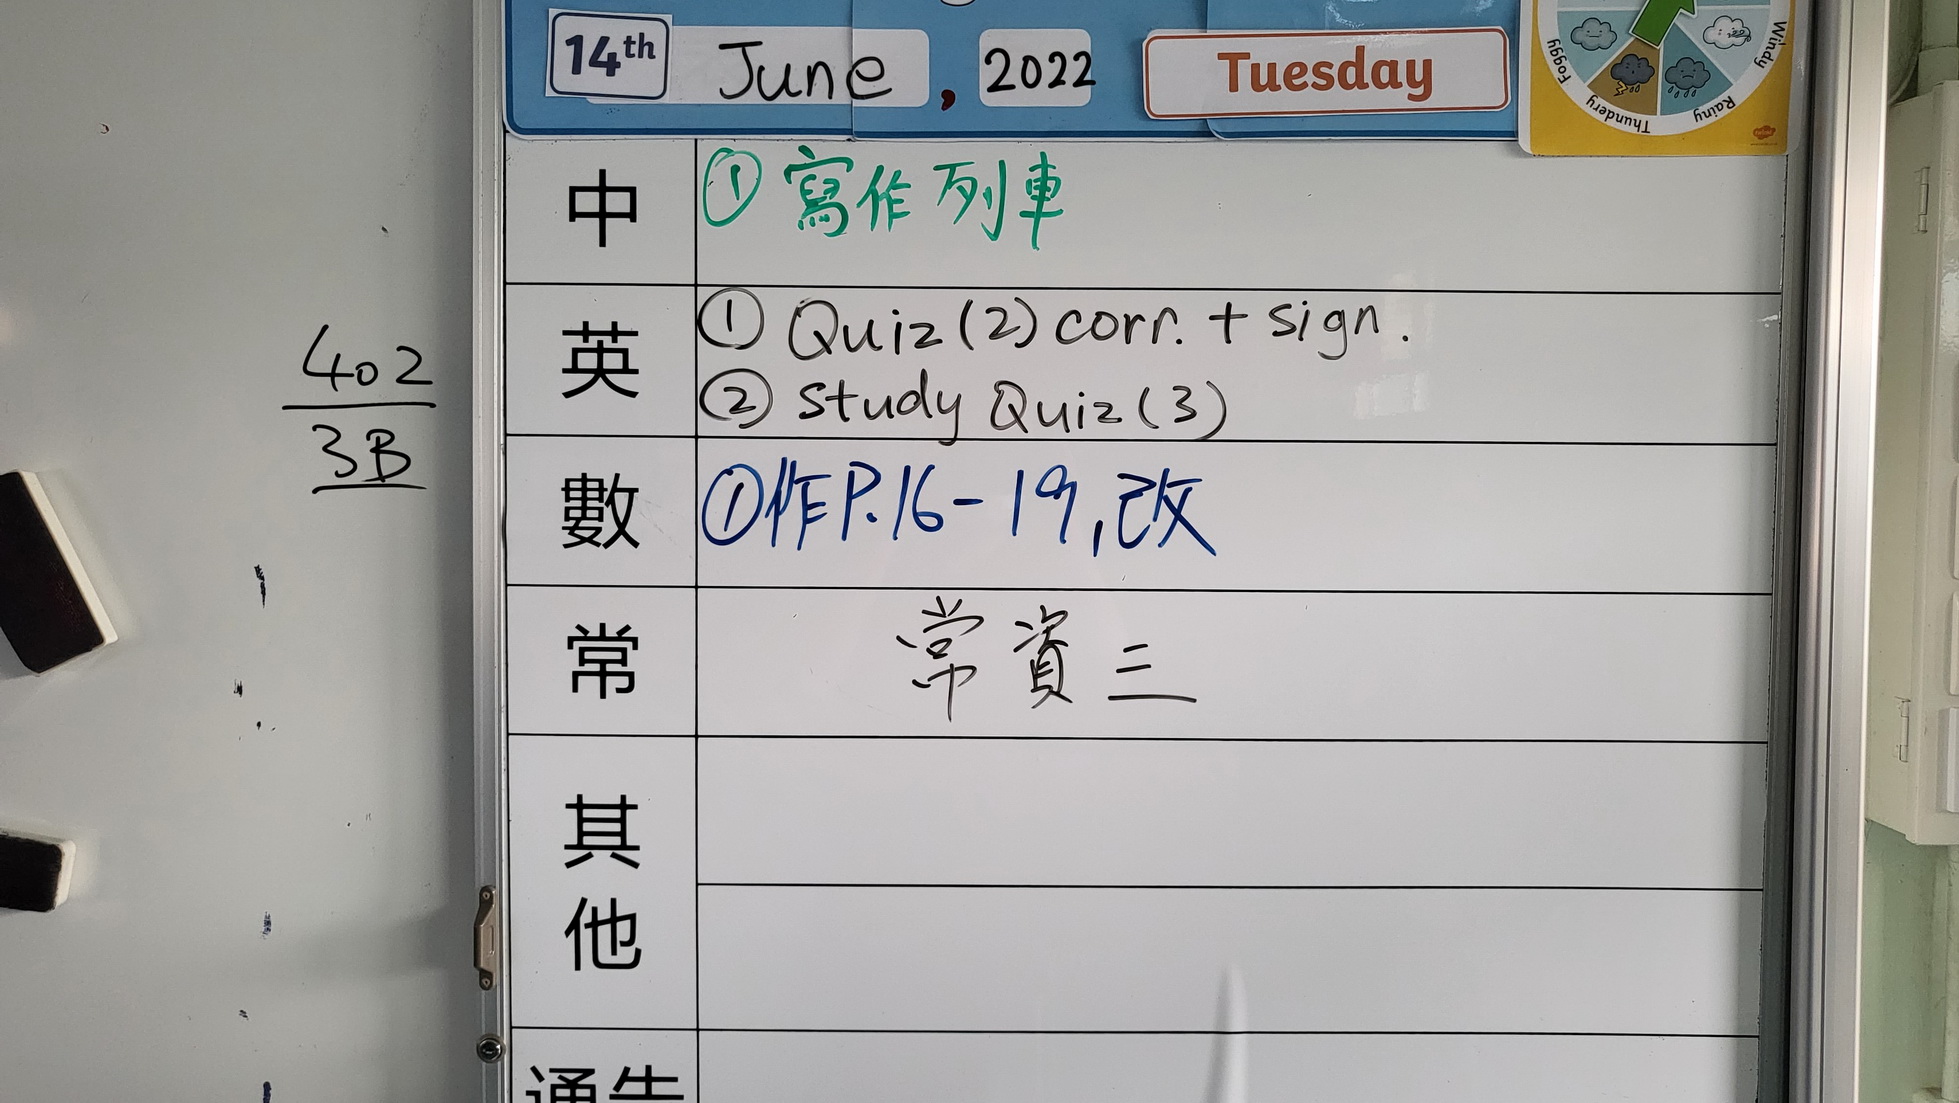 14th June, 2022 Tuesday
Foggy
Thundery
Rainy
Windy
中 ① 寫作列車
英 ① Quiz (2) corr. + sign.
② study Quiz (3)
數 ① 作 P.16-19, 改
常 常資二
其他
通告
402
3B